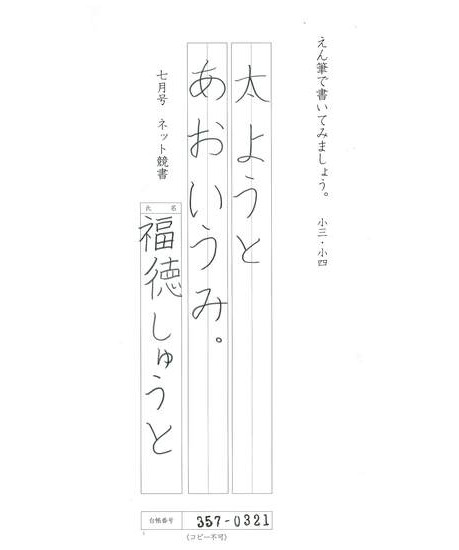 えん筆で書いてみましょう。 小三・小四
太ようと
あおいうみ。
七月号 ネット競書
氏名
福徳しゅうと
台帳番号 357-0321
(コピー不可)